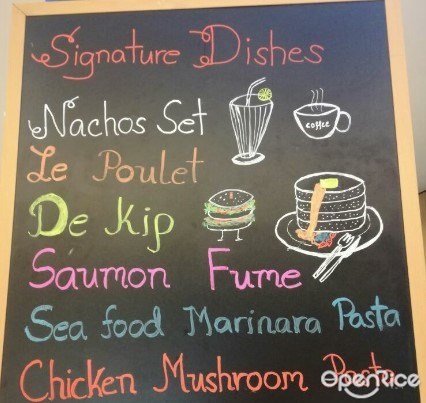 Signature Dishes
Nachos Set
coffee
Le Poulet
De Kip
Saumon Fume
Sea food Marinara Pasta
Chicken Mushroom Pasta
OpenRice